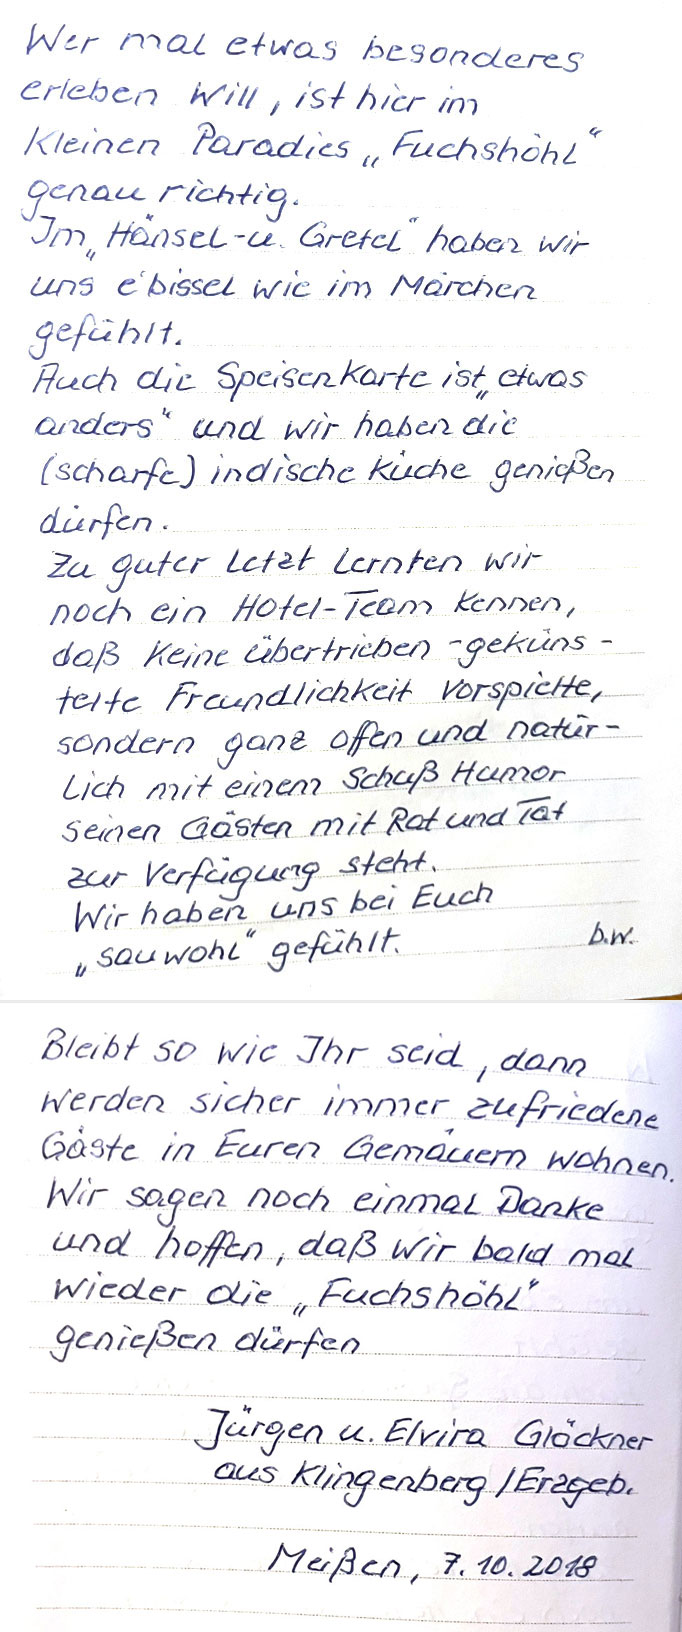 Wer mal etwas besonderes
erleben will, ist hier im
kleinen Paradies „Fuchshöhl“
genau richtig.
Im „Hänsel-u. Gretel“ haben wir
uns e'bissel wie im Märchen
gefühlt.
Auch die Speisenkarte ist „etwas
anders“ und wir haben die
(scharfe) indische Küche genießen
dürfen.
Zu guter letzt lernten wir
noch ein Hotel-Team kennen,
daß keine übertrieben-geküns-
telte Freundlichkeit vorspielte,
sondern ganz offen und natür-
lich mit einem Schuß Humor
seinen Gästen mit Rat und Tat
zur Verfügung steht.
Wir haben uns bei Euch
„sauwohl“ gefühlt.
b.w.
Bleibt so wie Ihr seid, dann
werden sicher immer zufriedene
Gäste in Euren Gemäuern wohnen.
Wir sagen noch einmal Danke
und hoffen, daß wir bald mal
wieder die „Fuchshöhl“
genießen dürfen
Jürgen u. Elvira Glöckner
aus Klingenberg /Erzgeb.
Meißen, 7.10.2018